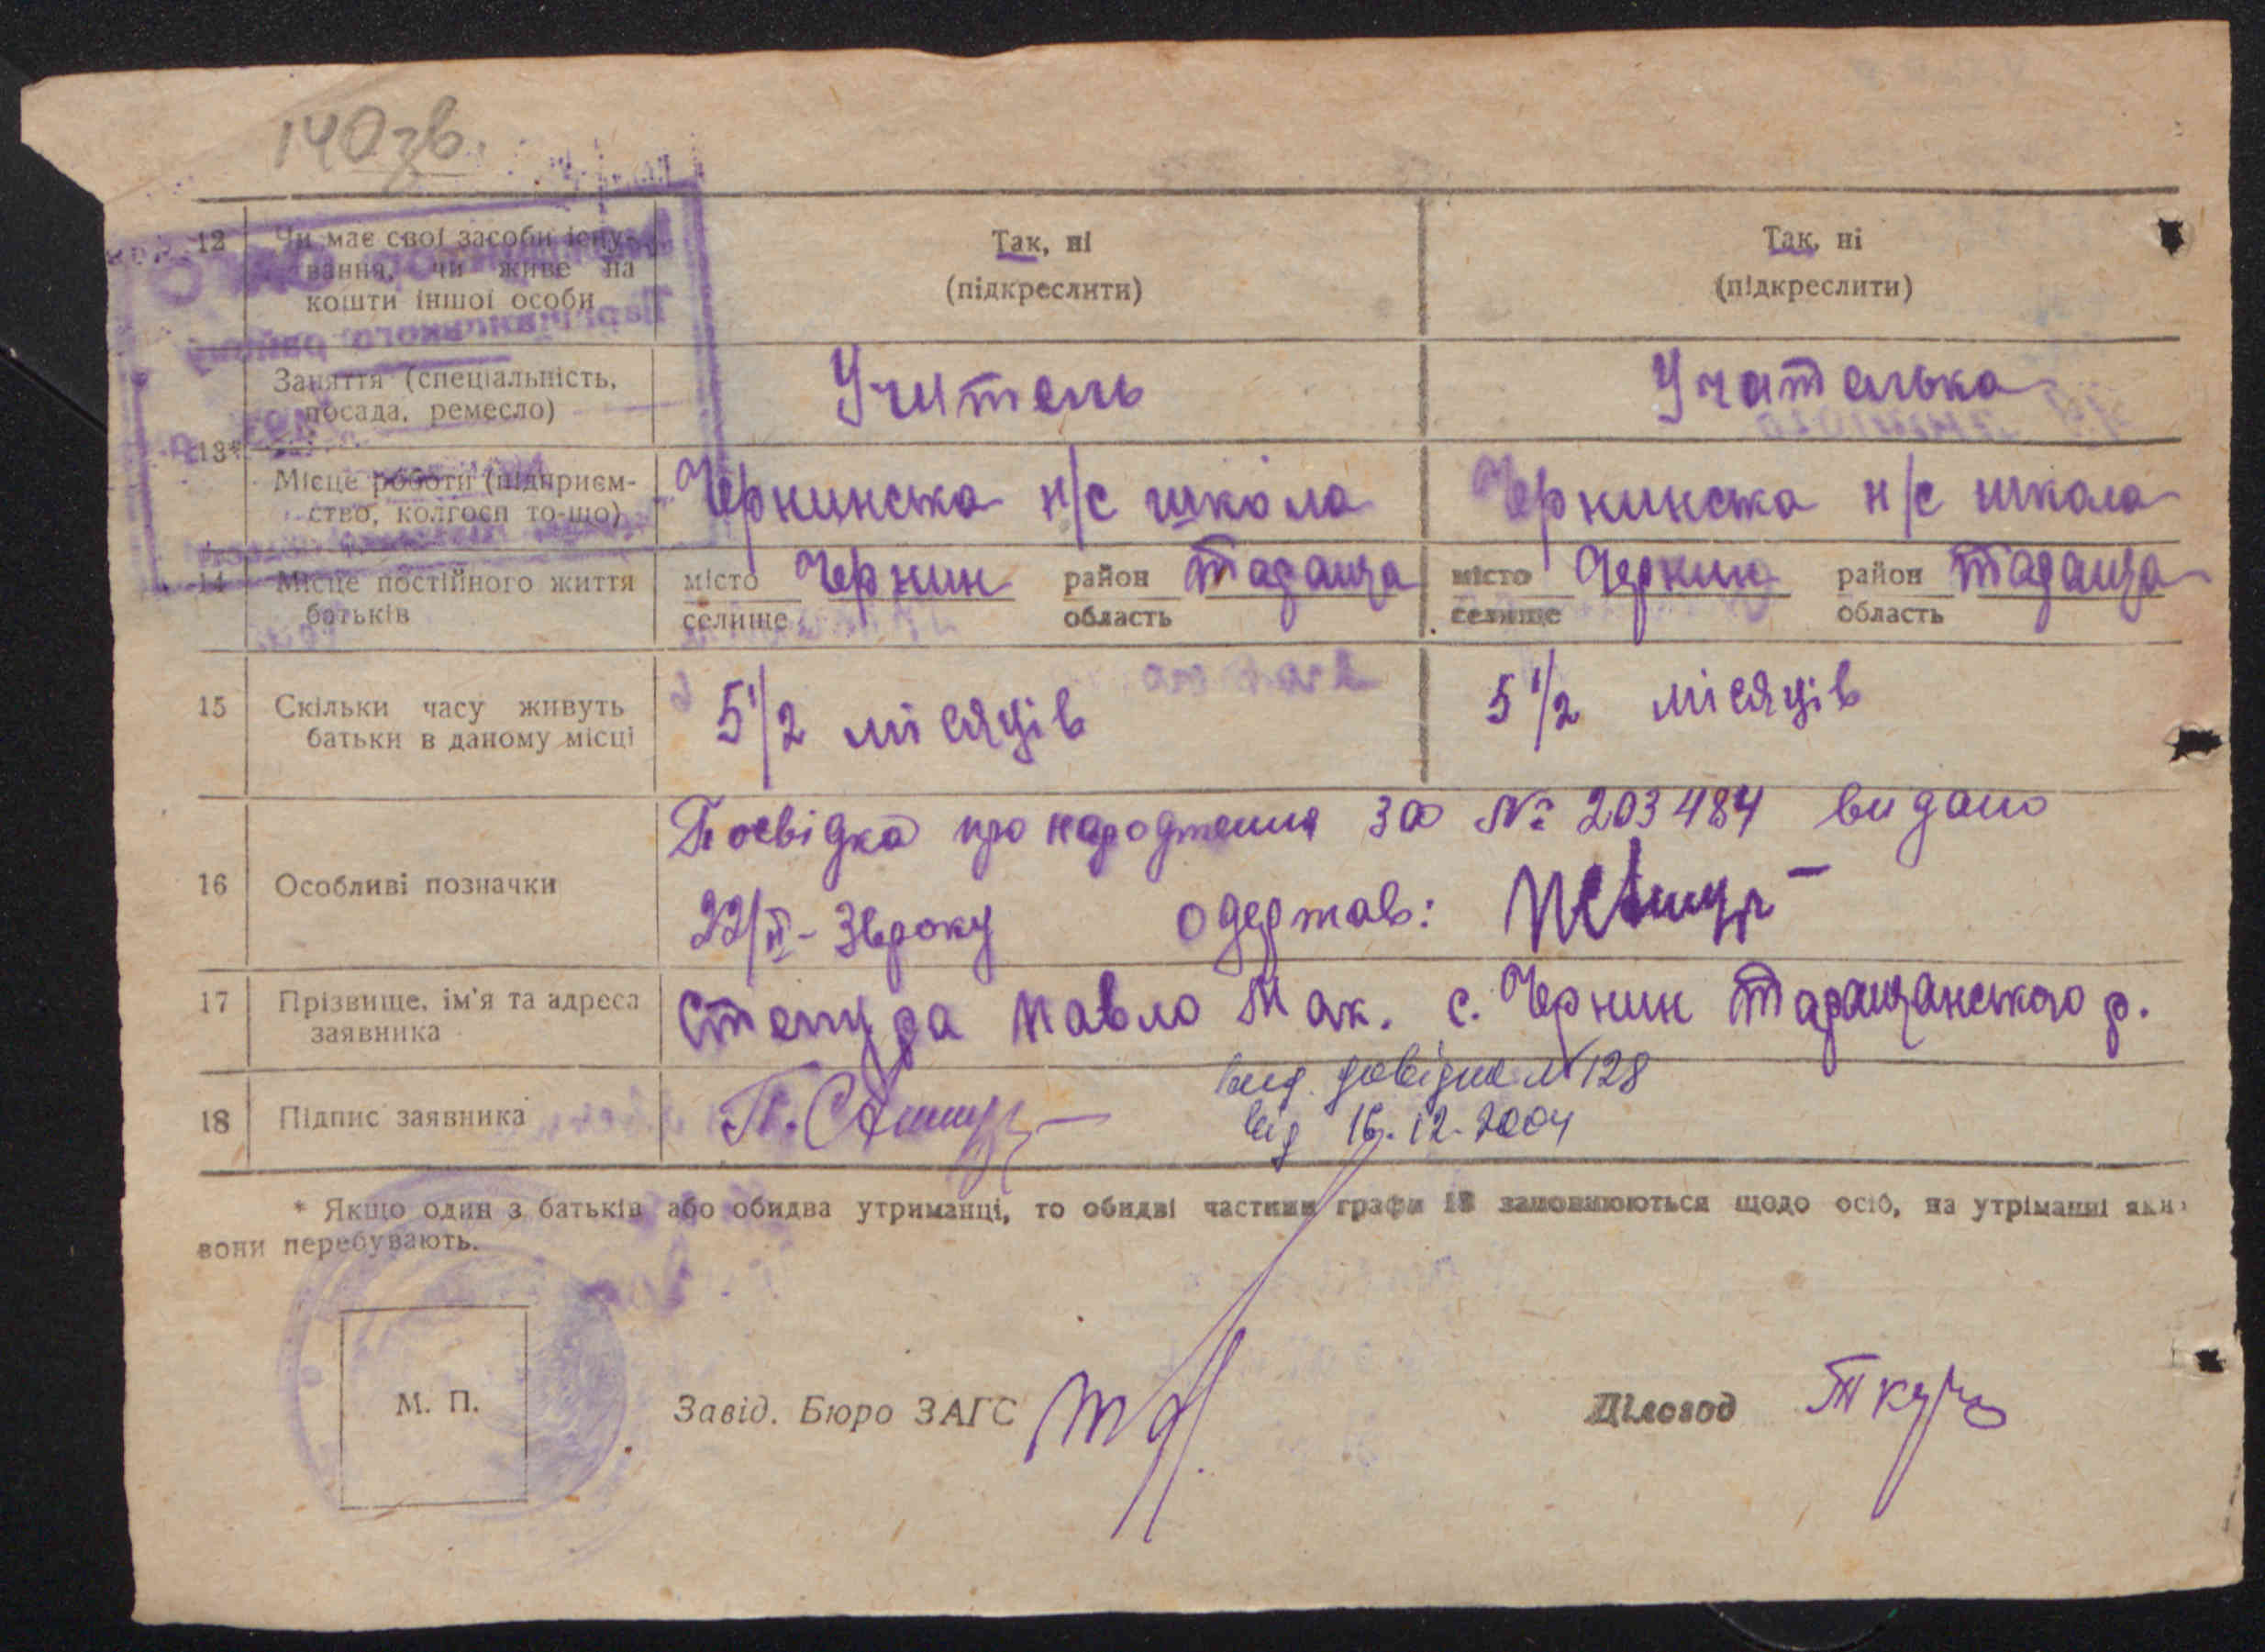 140зв.
12 Чи має свої засоби існу-
вання, чи живе на
кошти іншої особи
Так, ні
(підкреслити)
Так, ні
(підкреслити)
13*
Заняття (спеціальність,
посада, ремесло)
Учитель
Учителька
Місце роботи (підприєм-
ство, колгосп то-що)
Чернинська н/с школа
Чернинська н/с школа
14 Місце постійного життя
батьків
місто Чернин район Тараща
селище область
місто Чернин район Тараща
селище область
15 Скільки часу живуть
батьки в даному місці
5 1/2 місяців
5 1/2 місяців
16 Особливі позначки
Посвідка про народження за № 203484 видано
22/II- року одержав:
17 Прізвище, ім'я та адреса
заявника
Павло Мак. с. Чернин Таращанського р.
18 Підпис заявника
П.
вид. довідка N 128
від 16.12.2004
* Якщо один з батьків або обидва утриманці, то обидві частини графи 13 заповнюються щодо осіб, на утріманні яких
вони перебувають.
М. П.
Завід. Бюро ЗАГС
Діловод